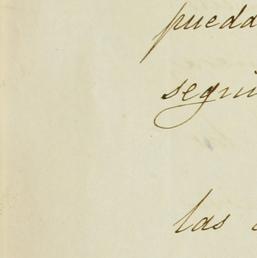 pueda
segui
las